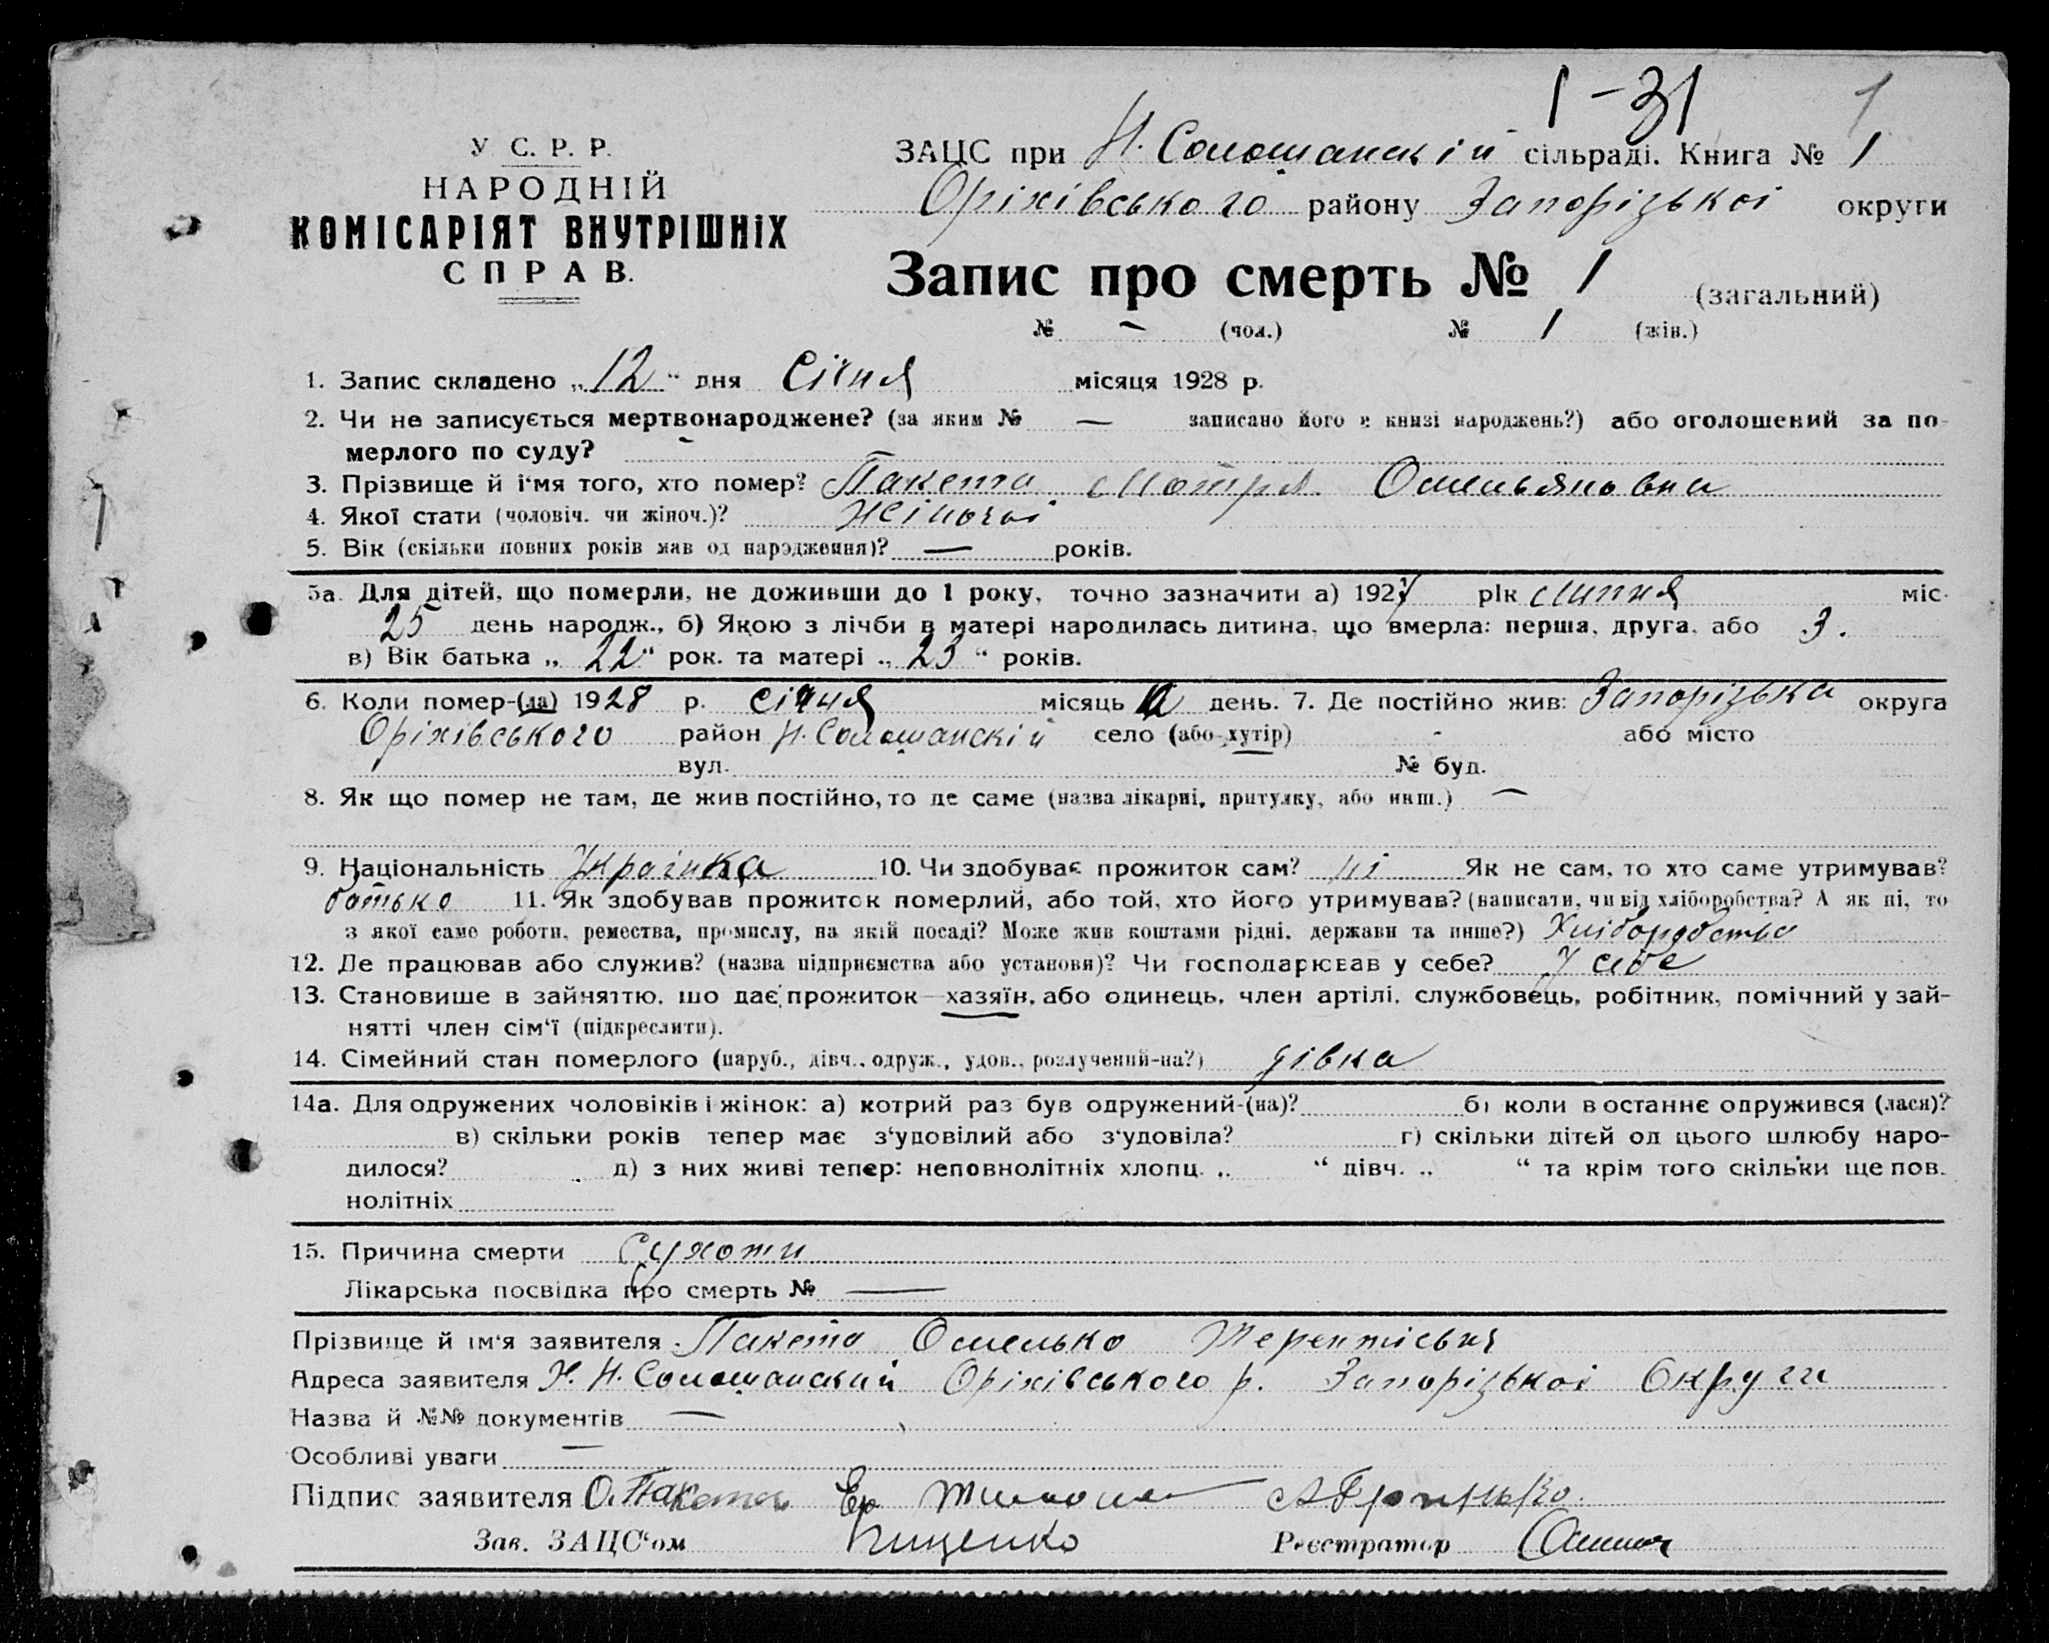 1-31 1
У С. Р. Р.
НАРОДНІЙ
КОМІСАРІЯТ ВНУТРІШНІХ
СПРАВ.
ЗАЦС при Н. Солошанскій сільраді. Книга № 1
Оріхівського району Запорізькоі округи
Запис про смерть № 1 (загальний)
№ – (чол.) № 1 (жін.)
1. Запис складено „12“ дня Січня місяця 1928 р.
2. Чи не записується мертвонароджене? (за яким № — записано його в книзі народжень?) або оголошений за по-
мерлого по суду? –
3. Прізвище й ім'я того, хто помер? Пакета Мотря Омельяновна
4. Якої стати (чоловіч. чи жіноч.)? жіночоі
5. Вік (скільки повних років мав од народження)? — років.
5а. Для дітей, що померли, не доживши до 1 року, точно зазначити а) 1927 рік липня міс.
25 день народж., б) Якою з лічби в матері народилась дитина, що вмерла: перша, друга, або 3.
в) Вік батька „22“ рок. та матері „23“ років.
6. Коли помер-(ла) 1928 р. січня місяць день. 7. Де постійно жив: Запорізька округа
Оріхівського район Н. Солошанскій село (або хутір) - або місто
вул. № буд.
8. Як що помер не там, де жив постійно, то де саме (назва лікарні, притулку, або инш.) —
9. Національність Украінка 10. Чи здобуває прожиток сам? ні Як не сам, то хто саме утримував?
батько 11. Як здобував прожиток померлий, або той, хто його утримував? (написати, чи від хліборобства? А як ні, то
з якої саме роботи, ремества, промислу, на якій посаді? Може жив коштами рідні, держави та инше?) Хліборобства
12. Де працював або служив? (назва підприємства або установи)? Чи господарював у себе? У себе
13. Становище в зайняттю, що дає прожиток—хазяїн, або одинець, член артілі, службовець, робітник, помічний у зай-
нятті член сім'ї (підкреслити).
14. Сімейний стан померлого (паруб., дівч., одруж., удов., розлучений-на?) дівка
14а. Для одружених чоловіків і жінок: а) котрий раз був одружений-(на)? б) коли в останнє одружився (лася)?
в) скільки років тепер має з'удовілий або з'удовіла? г) скільки дітей од цього шлюбу наро-
дилося? д) з них живі тепер: неповнолітніх хлопц. „ “ дівч. „ “ та крім того скільки ще пов.
нолітніх
15. Причина смерти Сухоти
Лікарська посвідка про смерть № —
Прізвище й ім'я заявителя Пакета Омелько Терентіевич
Адреса заявителя Х. Н. Солошанский Оріхівського р. Запорізькоі Округи
Назва й №№ документів —
Особливі уваги —
Підпис заявителя О. Пакета
Зав. ЗАЦС'ом Пищенко Реєстратор